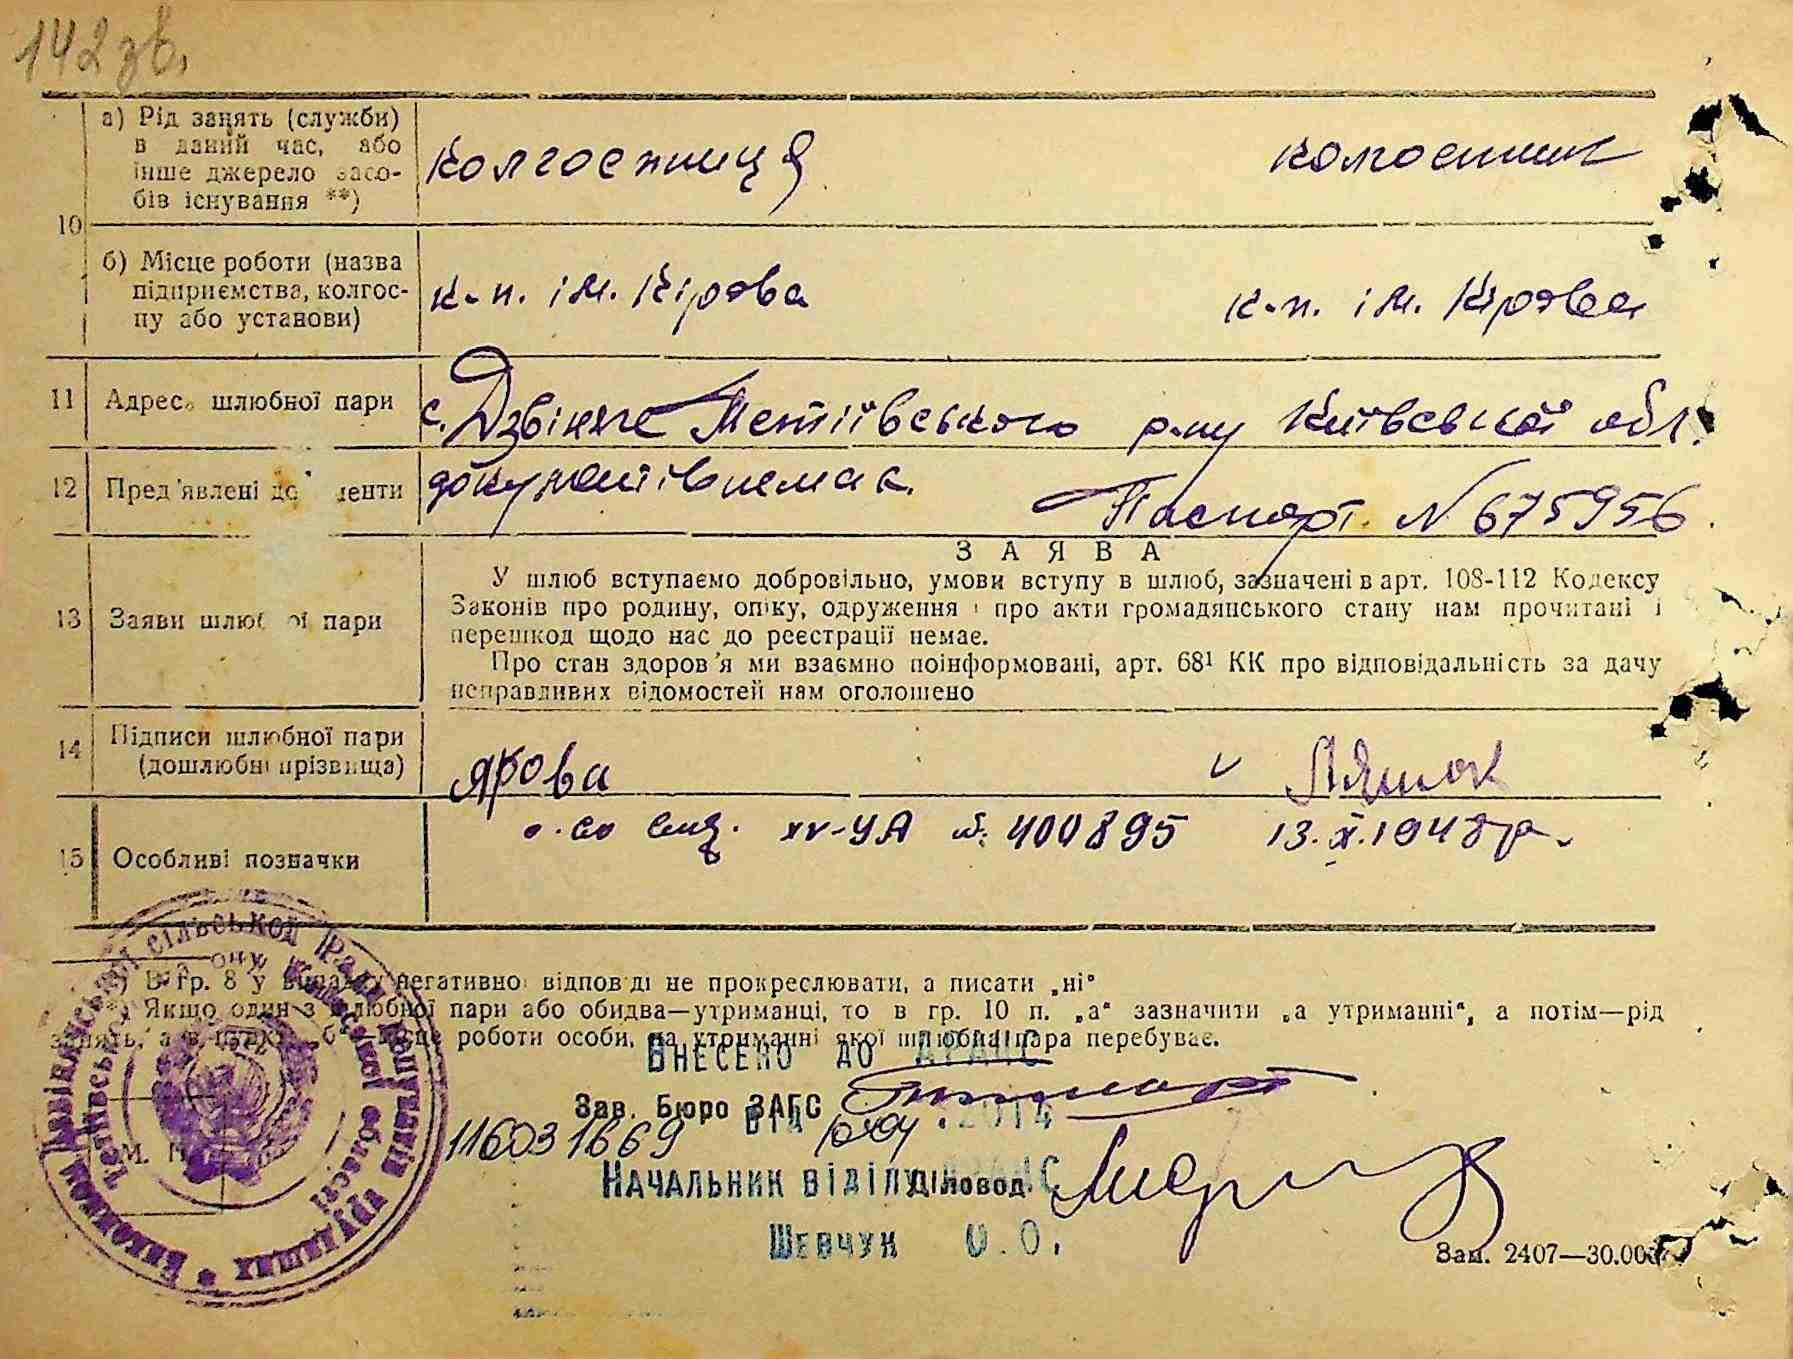 142 зв.
10
а) Рід занять (служби)
в даний час, або
інше джерело засо-
бів існування **)
колгоспниця
колгоспник
б) Місце роботи (назва
підприємства, колгос-
пу або установи)
к-п. ім. Кірова
к-п. ім. Кірова
11
Адреса шлюбної пари
с. Дзвіняче Тетіївського р-ну Київської обл.
12
Пред'явлені до енти
документів немає.
Паспорт. № 675956
13
Заяви шлюбної пари
ЗАЯВА
У шлюб вступаємо добровільно, умови вступу в шлюб, зазначені в арт. 108-112 Кодексу
Законів про родину, опіку, одруження і про акти громадянського стану нам прочитані і
перешкод щодо нас до реєстрації немає.
Про стан здоров'я ми взаємно поінформовані, арт. 68¹ КК про відповідальність за дачу
неправдивих відомостей нам оголошено
14
Підписи шлюбної пари
(дошлюбні прізвища)
Ярова
Ляшок
15
Особливі позначки
XV-УА №. 400895 13.X.1948 р.
*) В гр. 8 у випадку негативної відповіді не прокреслювати, а писати „ні"
**) Якщо один з шлюбної пари або обидва—утриманці, то в гр. 10 п. „а" зазначити „а утриманні", а потім—рід
занять, а в пункті „б" місце роботи особи, на утриманні якої шлюбна пара перебуває.
Внесено до ДРАЦС
Зав. Бюро ЗАГС
від .2014
11603 1669
Начальник відділу ДРАЦС
Діловод.
Шевчук О.О.
М. П.
Виконком Дзвінянської сільської Ради депутатів трудящих
Тетіївського р-ну Київської області
Зам. 2407—30.000